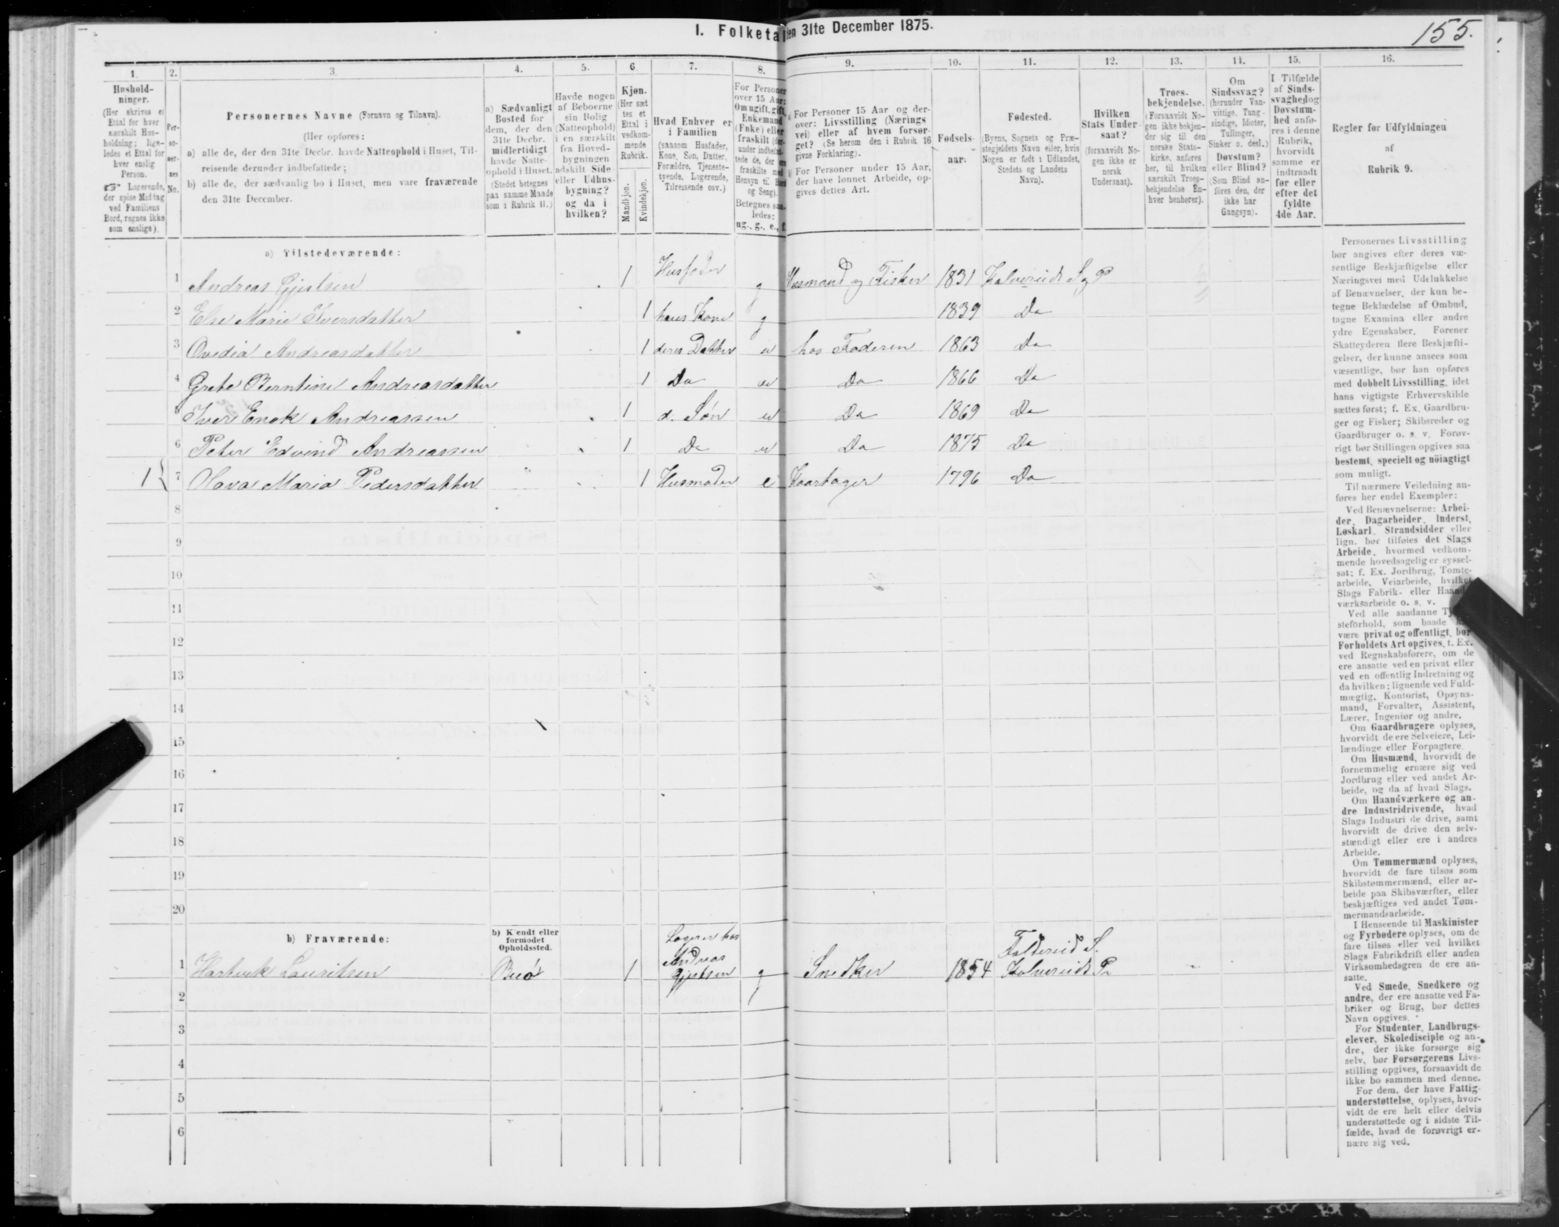 I. Folketa en 31te December 1875.
155.
1. 2. 3. 4. 5. 6 7. 8. 9. 10. 11. 12. 13. 14. 15. 16.
Hushold-
ninger.
(Her skrives et
Ettal for hver
særskilt Hus-
holdning; lige-
ledes et Ettal for
hver enslig
Person.
☞ Logerende,
der spise Middag
ved Familiens
Bord, regnes ikke
som enslige).
Per-
so-
ner-
nes
No.
Personernes Navne (Fornavn og Tilnavn).
(Her opføres:
a) alle de, der den 31te Decbr. havde Natteophold i Huset, Til-
reisende derunder indbefattede;
b) alle de, der sædvanlig bo i Huset, men vare fraværende
den 31te December.
a) Sædvanligt
Bosted for
dem, der den
31te Decbr.
midlertidigt
havde Natte-
ophold i Huset.
(Stedet betegnes
paa samme Maade
som i Rubrik 11.)
Havde nogen
af Beboerne
sin Bolig
(Natteophold)
i en særskilt
fra Hoved-
bygningen
adskilt Side
eller Udhus-
bygning?
og da i
hvilken?
Kjøn.
(Her sæt
tes et
Ettal i
vedkom-
mende
Rubrik.
Mandkjøn.
Kvindekjøn.
Hvad Enhver er
i Familien
(saasom Husfader,
Kone, Søn, Datter,
Forældre, Tjeneste-
tyende, Logerende,
Tilreisende osv.)
For Personer
over 15 Aar:
Om ugift, gift,
Enkemand
(Enke) eller
fraskilt
ledes:
ug., g., e., f.
For Personer 15 Aar og der-
over: Livsstilling (Nærings
vei) eller af hvem forsør-
get? (Se herom den i Rubrik 16
givne Forklaring).
For Personer under 15 Aar,
der have lønnet Arbeide, op-
gives dettes Art.
Fødsels-
aar.
Fødested.
(Byens, Sognets og Præ-
stegjeldets Navn eller, hvis
Nogen er født i Udlandet,
Stedets og Landets
Navn).
Hvilken
Stats Under
saat?
(forsaavidt No-
gen ikke er
norsk
Undersaat).
Troes-
bekjendelse.
(Forsaavidt No-
gen ikke bekjen-
der sig til den
norske Stats-
kirke, anføres
her, til hvilken
særskilt Troes-
bekjendelse En-
hver henhører).
Om
Sindssvag?
(herunder Van-
vittige, Tung-
sindige, Idioter,
Tullinger,
Sinker o. desl.)
Døvstum?
eller Blind?
(Som Blind an-
føres den, der
ikke har
Gangsyn).
I Tilfælde
af Sinds-
svaghed og
Døvstum-
hed anfø-
res i denne
Rubrik,
hvorvidt
samme er
indtraadt
før eller
efter det
fyldte
4de Aar.
Regler for Udfyldningen
af
Rubrik 9.
a) Tilstedeværende:
1 Andreas Gjertsen 1 Husfader g Husmand og Fisker 1831 Kolvereids S og P
2 Else Marie Iversdatter 1 hans Kone g 1839 Do
3 Ovedia Andreasdatter 1 deres Datter u hos Faderen 1863 Do
4 Grete Berntine Andreasdatter 1 Do u Do 1866 Do
5 Iver Enok Andreassen 1 d. Søn u Do 1869 Do
6 Peter Edvind Andreassen 1 Do u Do 1875 Do
1 7 Maria Pedersdatter 1 Husmoder e Kaartager 1796 Do
8
9
10
11
12
13
14
15
16
17
18
19
20
b) Fraværende:
b) Kjendt eller
formodet
Opholdssted.
1 Hartvik Lauritsen 1 Logerer hos Andreas Gjertsen g Snedker 1854 Foldereid S. Kolvereids P.
2
3
4
5
6
Personernes Livsstilling
bør angives efter deres væ-
sentlige Beskjæftigelse eller
Næringsvei med Udelukkelse
af Benævnelser, der kun be-
tegne Beklædelse af Ombud,
tagne Examina eller andre
ydre Egenskaber. Forener
Skatteyderen flere Beskjæfti-
gelser, der kunne ansees som
væsentlige, bør han opføres
med dobbelt Livsstilling, idet
hans vigtigste Erhvervskilde
sættes først; f. Ex. Gaardbru-
ger og Fisker; Skibsreder og
Gaardbruger o. s. v. Forøv-
rigt bør Stillingen opgives saa
bestemt, specielt og nøiagtigt
som muligt.
Til nærmere Veiledning an-
føres her endel Exempler:
Ved Benævnelserne: Arbei-
der, Dagarbeider, Inderst,
Løskarl, Strandsidder eller
lign. bør tilføies det Slags
Arbeide, hvormed vedkom-
mende hovedsagelig er syssel-
sat; f. Ex. Jordbrug, Tomte-
arbeide, Veiarbeide, hvilket
Slags Fabrik- eller Haand-
værksarbeide o. s. v.
Ved alle saadanne
steforhold, som baade
være privat og offentligt, bør
Forholdets Art opgives, t. Ex.
ved Regnskabsførere, om de
ere ansatte ved en privat eller
ved en offentlig Indretning og
da hvilken; lignende ved Fuld-
mægtig, Kontorist, Opsyns-
mand, Forvalter, Assistent,
Lærer, Ingeniør og andre.
Om Gaardbrugere oplyses,
hvorvidt de ere Selveiere, Lei-
lændinge eller Forpagtere.
Om Husmænd, hvorvidt de
fornemmelig ernære sig ved
Jordbrug eller ved andet Ar-
beide, og da af hvad Slags.
Om Haandværkere og an-
dre Industridrivende, hvad
Slags Industri de drive, samt
hvorvidt de drive den selv-
stændigt eller ere i andres
Arbeide.
Om Tømmermænd oplyses,
hvorvidt de fare tilsøs som
Skibstømmermænd, eller ar-
beide paa Skibsværfter, eller
beskjæftiges ved andet Tøm-
mermandsarbeide.
I Henseende til Maskinister
og Fyrbødere oplyses, om de
fare tilsøs eller ved hvilket
Slags Fabrikdrift eller anden
Virksomhedsgren de ere an-
satte.
Ved Smede, Snedkere og
andre, der ere ansatte ved Fa-
briker og Brug, bør dettes
Navn opgives.
For Studenter, Landbrugs-
elever, Skoledisciple og an-
dre, der ikke forsørge sig
selv, bør Forsørgerens Livs-
stilling opgives, forsaavidt de
ikke bo sammen med denne.
For dem, der have Fattig-
understøttelse, oplyses, hvor-
vidt de ere helt eller delvis
understøttede og i sidste Til-
fælde, hvad de forøvrigt er-
nære sig ved.